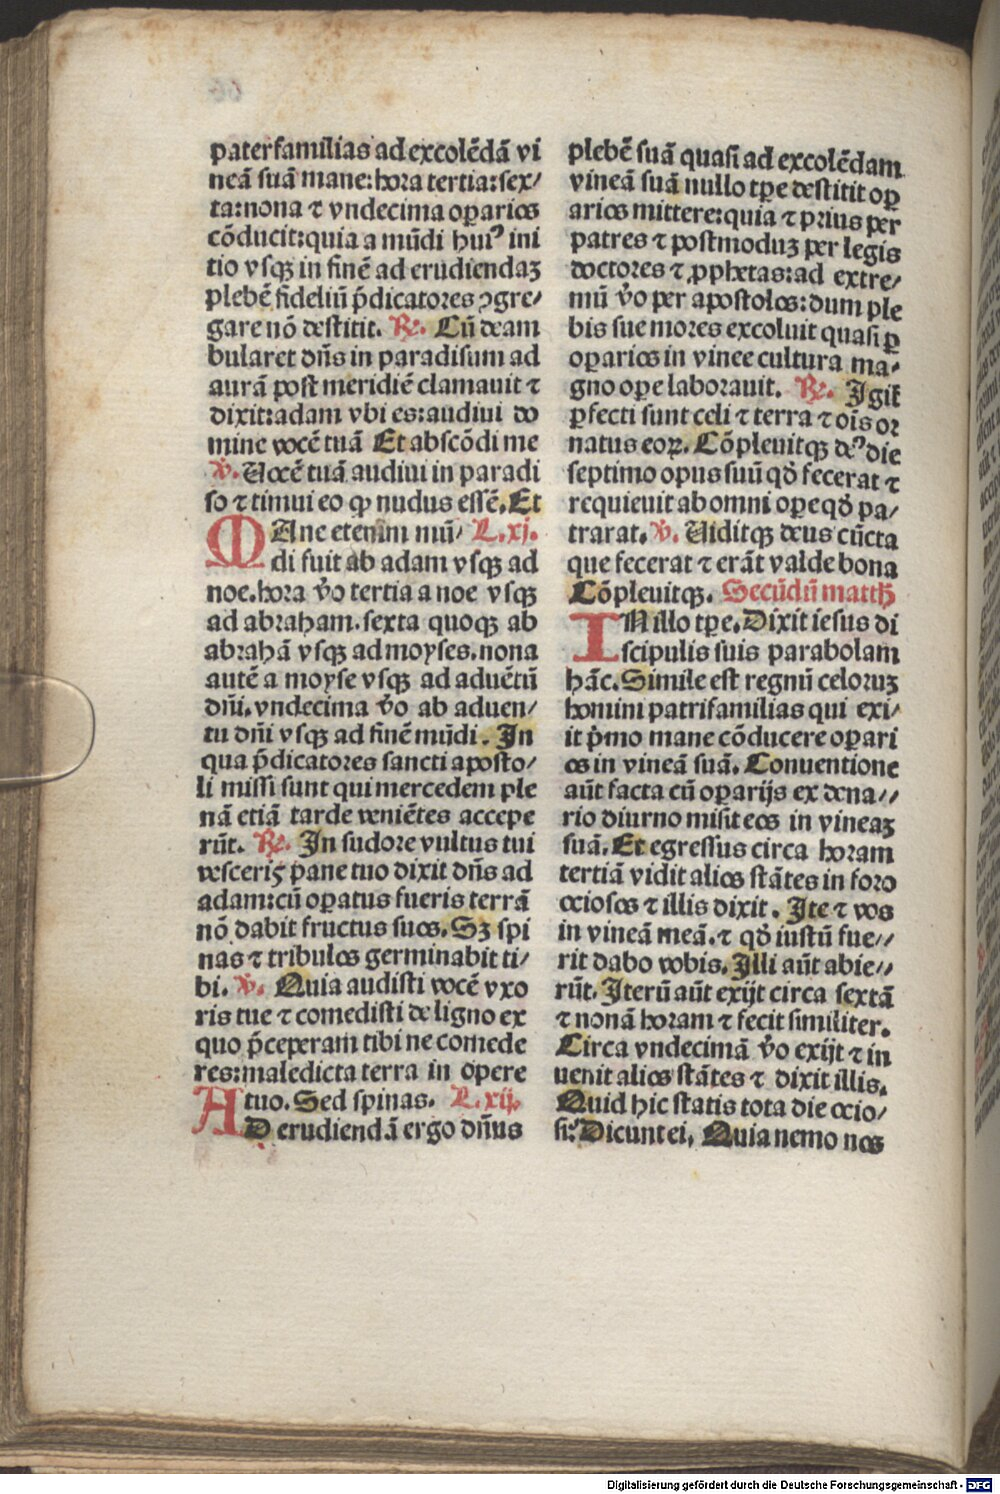 paterfamilias ad excolēdā vi
neā suā mane: hora tertia: sex/
ta: nona ⁊ vndecima oꝑarios
cōducit: quia a mūdi huiꝰ ini
tio vsqꝫ in finē ad erudiendaꝫ
plebē fideliū p̄dicatores ꝯgre/
gare nō destitit. ℞. Cū deam
bularet dn̄s in paradisum ad
aurā post meridiē clamauit ⁊
dixit: adam vbi es: audiui do
mine vocē tuā Et abscōdi me
℣. Uocē tuā audiui in paradi
so ⁊ timui eo ꝙ nudus essē. Et
MAne etenim mū/ L. xj.
di fuit ab adam vsqꝫ ad
noe. hora v̄o tertia a noe vsqꝫ
ad abraham. sexta quoqꝫ ab
abrahā vsqꝫ ad moyses. nona
autē a moyse vsqꝫ ad aduētū
dn̄i. vndecima v̄o ab aduen/
tu dn̄i vsqꝫ ad finē mūdi. In
qua p̄dicatores sancti aposto/
li missi sunt qui mercedem ple
nā etiā tarde veniētes accepe
rūt. ℞. In sudore vultus tui
vesceris pane tuo dixit dn̄s ad
adam: cū oꝑatus fueris terrā
nō dabit fructus suos. Sꝫ spi
nas ⁊ tribulos germinabit ti/
bi. ℣. Quia audisti vocē vxo
ris tue ⁊ comedisti de ligno ex
quo p̄ceperam tibi ne comede
res: maledicta terra in opere
tuo. Sed spinas. L. xij.
AD erudiendā ergo dn̄us
plebē suā quasi ad excolēdam
vineā suā nullo tꝑe destitit oꝑ
arios mittere: quia ⁊ prius per
patres ⁊ postmoduꝫ per legis
doctores ⁊ ꝓphetas: ad extre/
mū v̄o per apostolos: dum ple
bis sue mores excoluit quasi ꝑ
oꝑarios in vinee cultura ma-
gno oꝑe laborauit. ℞. Igit̄
ꝑfecti sunt celi ⁊ terra ⁊ oīs or
natus eoꝝ. Cōpleuitqꝫ deꝰ die
septimo opus suū qd̄ fecerat ⁊
requieuit ab omni oꝑe qd̄ pa/
trarat. ℣. Uiditqꝫ deus cūcta
que fecerat ⁊ erāt valde bona
Cōpleuitqꝫ. Secūdū matth̄
IN illo tꝑe. Dixit iesus di
scipulis suis parabolam
hāc. Simile est regnū celoruꝫ
homini patrifamilias qui exi/
it p̄mo mane cōducere oꝑari
os in vineā suā. Conuentione
aūt facta cū oꝑarijs ex dena//
rio diurno misit eos in vineaꝫ
suā. Et egressus circa horam
tertiā vidit alios stātes in foro
ociosos ⁊ illis dixit. Ite ⁊ vos
in vineā meā. ⁊ qd̄ iustū fue//
rit dabo vobis. Illi aūt abie//
rūt. Iterū aūt exijt circa sextā
⁊ nonā horam ⁊ fecit similiter.
Circa vndecimā v̄o exijt ⁊ in
uenit alios stātes ⁊ dixit illis.
Quid hic statis tota die ocio/
si: Dicunt ei. Quia nemo nos
Digitalisierung gefördert durch die Deutsche Forschungsgemeinschaft - DFG